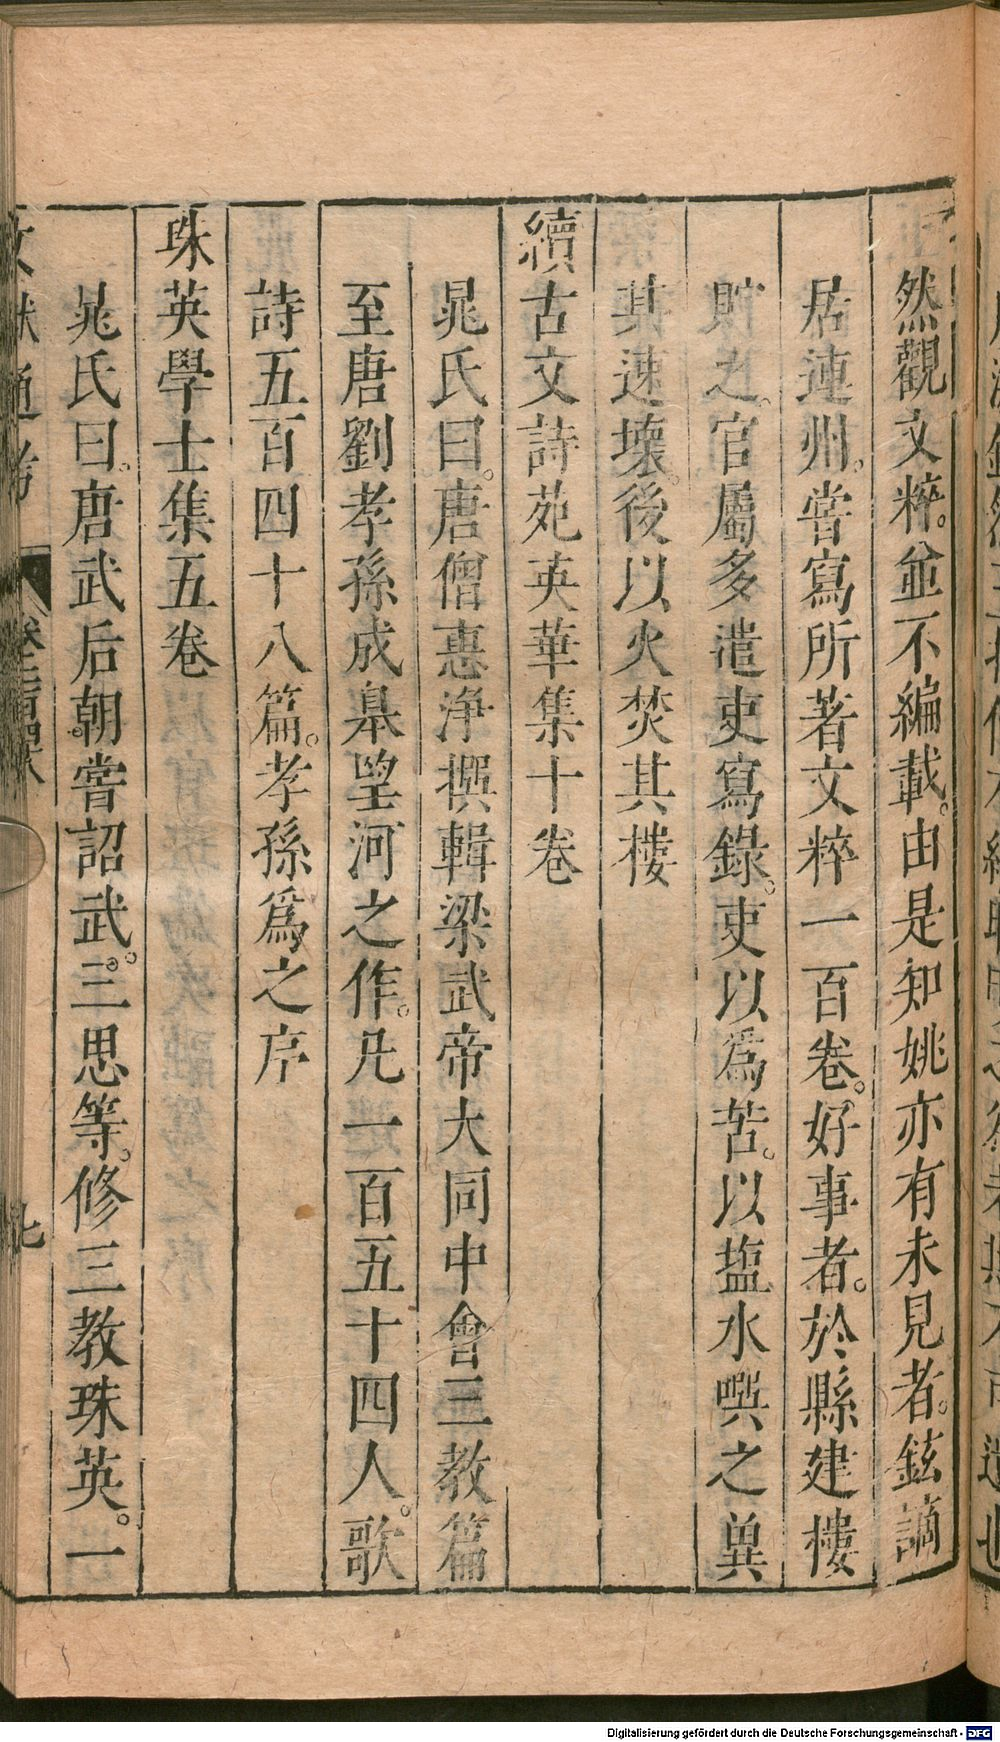 然觀文粹。並不編載。由是知姚亦有未見者。鉉謫
居連州。嘗寫所著文粹一百卷。好事者。於縣建樓
貯之。官屬多遣吏寫錄。吏以爲苦。以塩水噀之兾
其速壞。後以火焚其樓
續古文詩苑英華集十卷
晁氏曰。唐僧惠浄撰輯梁武帝大同中會三教篇
至唐劉孝孫成臯望河之作。凡一百五十四人。歌
詩五百四十八篇。孝孫爲之序
珠英學士集五卷
晁氏曰。唐武后朝。嘗詔武。三思等。修三教珠英。一
文獻通考
卷二百四十八
九
Digitalisierung gefördert durch die Deutsche Forschungsgemeinschaft - DFG